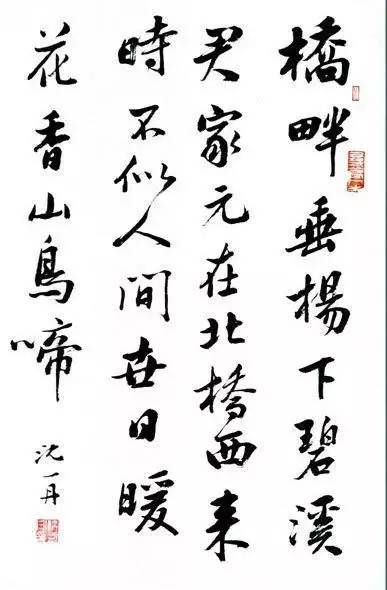 橋畔垂楊下碧溪
君家元在北橋西来
時不似人間世日暖
花香山鳥啼
沈一丹